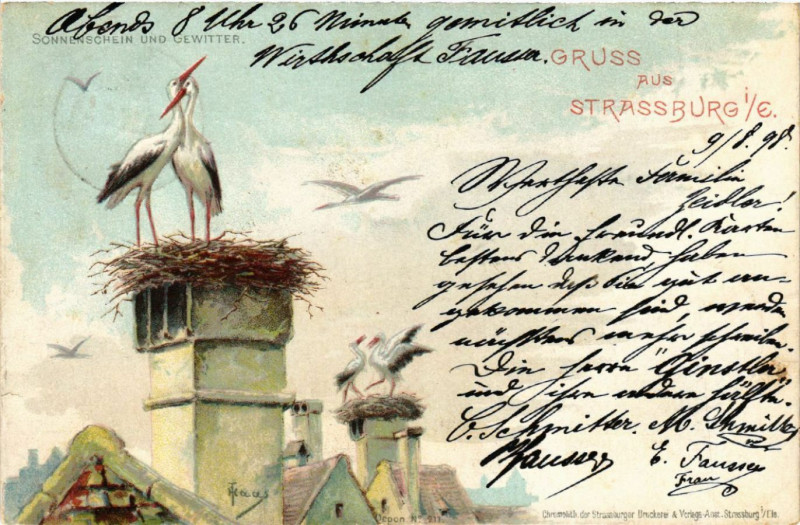 Abends 8 Uhr 26 Minuten gemitlich in der
Wirthschaft Fausser.
SONNENSCHEIN UND GEWITTER.
GRUSS
AUS
STRASSBURG i/E.
9/8.98.
Wertheste Familie
Zeidler!
Für die freundl. Karten
bestens dankend, haben
gesehen daß Sie gut an-
gekommen sind, werden
nächstens mehr schreiben.
Die Herrn "Günstler"
und ihre andere Hälfte.
C. Schmitter. M. Schmitter
Fausser E. Fausser
Frau
Depon. No. 211.
Chromolith. der Strassburger Druckerei & Verlags-Anst. Strassburg i/Els.